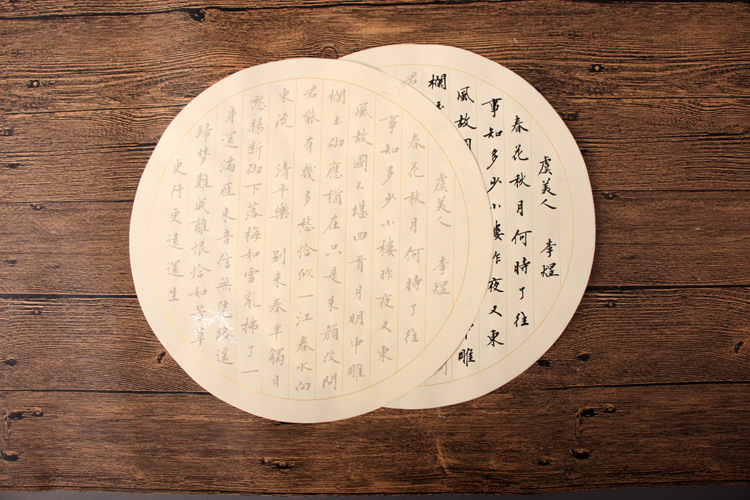 虞美人 李煜
春花秋月何時了往
事知多少小樓昨夜又東
風故國 中雕
欄玉 問
君
虞美人 李煜
春花秋月何時了往
事知多少小樓昨夜又東
風故國不堪回首月明中雕
欄玉砌應猶在只是朱顏改問
君能有幾多愁恰似一江春水向
東流 清平樂 別來春半觸目
愁腸断砌下落梅如雪亂拂了一
身還滿雁来音信無凭路遥
歸梦難成離恨恰如芳草
更行更遠還生